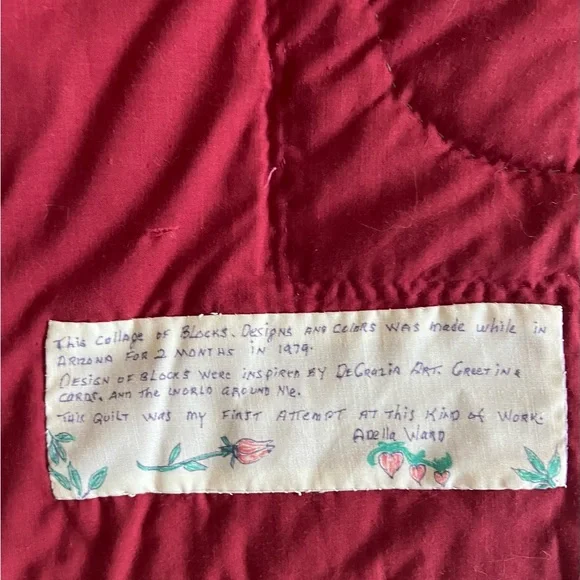 This Collage of Blocks. Designs and Colors was made while in
Arizona for 2 months in 1979.
Design of Blocks were inspired by DeGrazia Art. Greeting
cards. and the world around me.
This Quilt was my first attempt at this kind of work.
Adella Ward